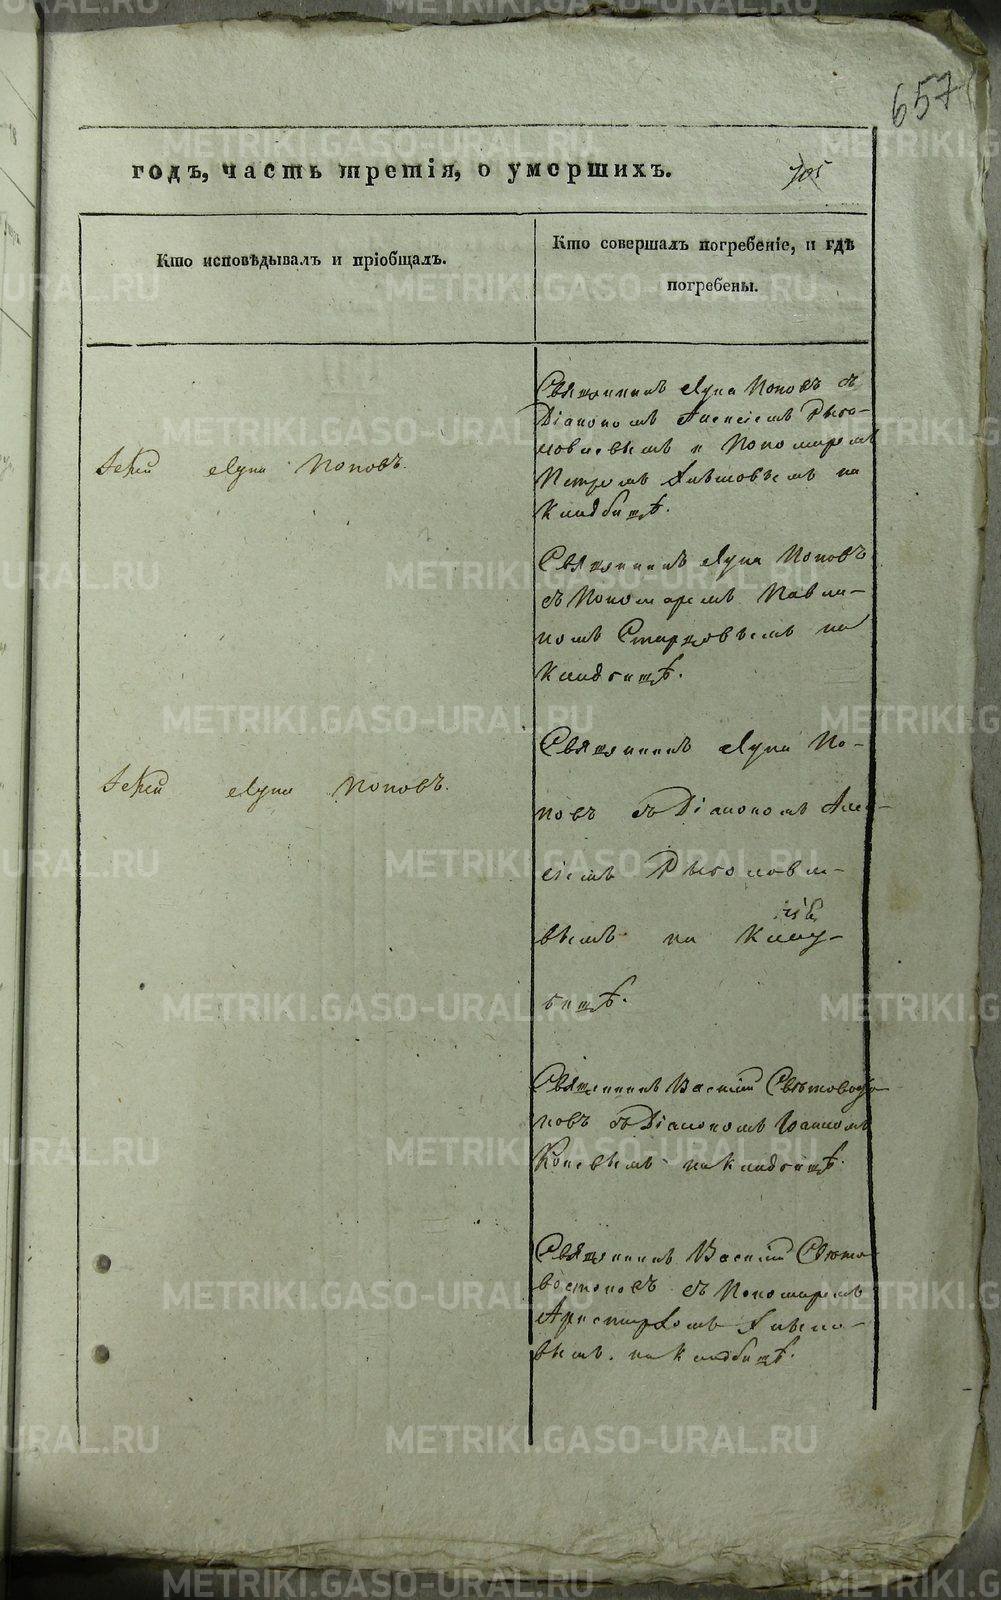 657
годъ, часть третія, о умершихъ.
705
Кто исповѣдывалъ и пріобщалъ.
Кто совершалъ погребеніе, и гдѣ
погребены.
Священникъ Лука Поповъ съ
Діакономъ Алексіемъ Рыбо-
ловлевымъ и Пономаремъ
Петромъ на
Кладбищѣ.
Іерей Лука Поповъ.
Священникъ Лука Поповъ
съ Пономаремъ Павли-
номъ Старцовымъ на
Кладбищѣ.
Священникъ Лука По-
повъ съ Діакономъ Алек-
сіемъ Рыболовле-
вымъ на
бищѣ.
Іерей Лука Поповъ.
Священникъ Василій
съ Діакономъ Іоанномъ
на Кладбищѣ.
Священникъ Василій
съ Пономаремъ
Аристархомъ
вымъ на Кладбищѣ.
METRIKI.GASO-URAL.RU